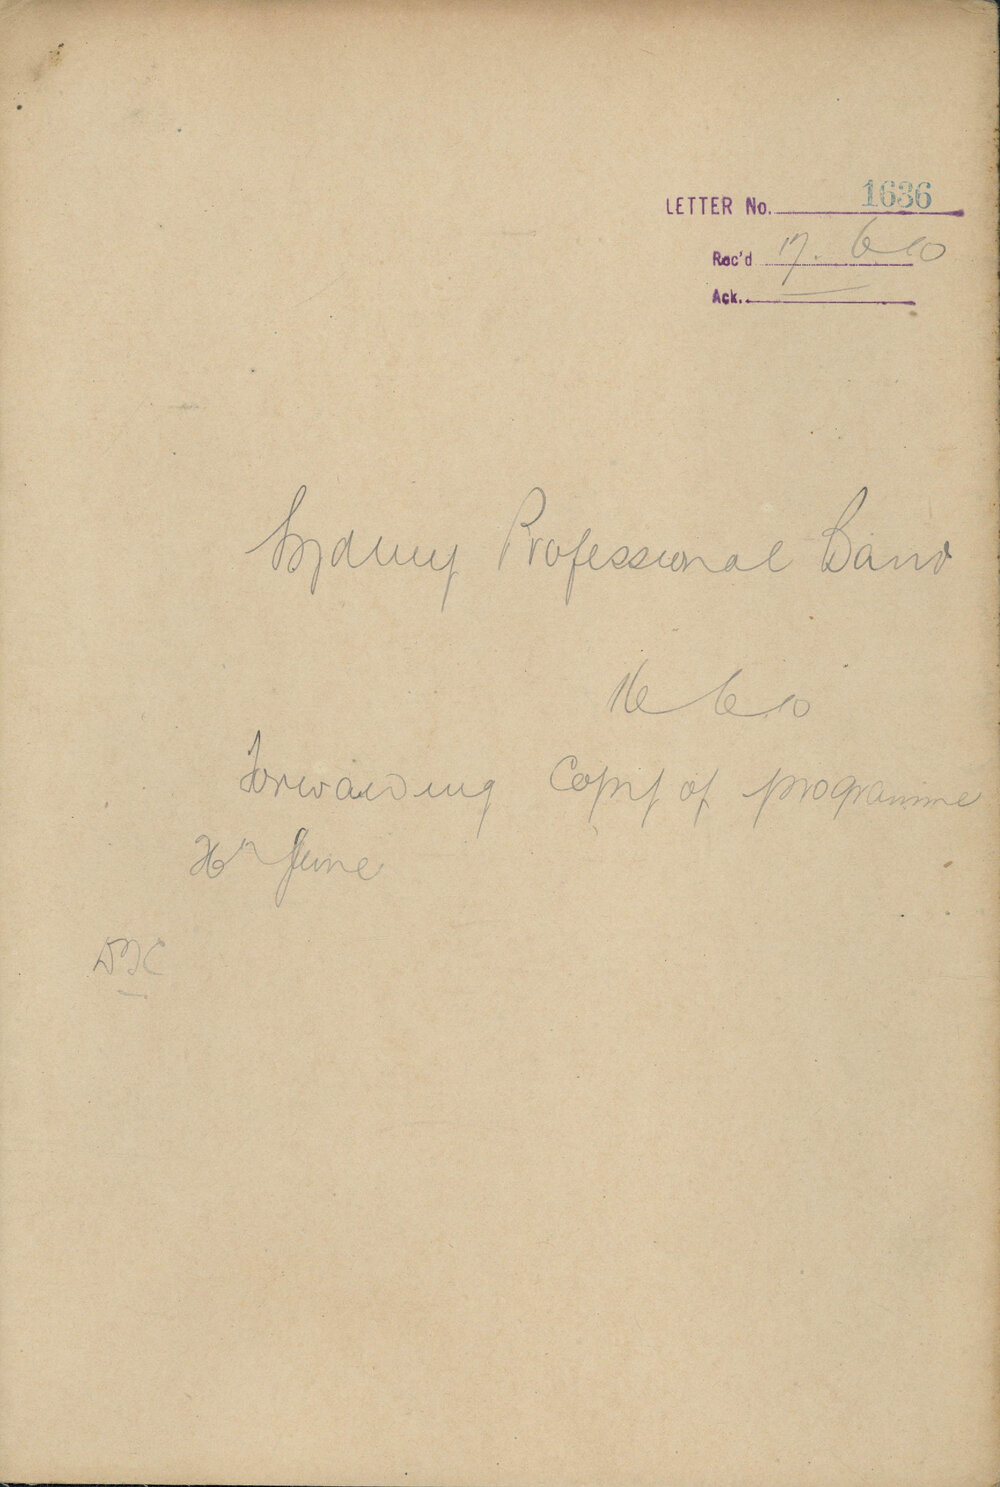 LETTER No. 1636
Rec'd 17. 6 10
Ack.
Sydney Professional Band
16 6.10
Forwarding Copy of programme
26th June